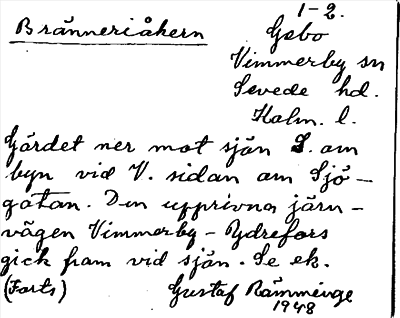 1-2.
Bränneriåkern Gebo
Vimmerby sn
Sevede hd.
Kalm. l.
Gärdet ner mot sjön S. om
byn vid V. sidan om Sjö-
gatan. Den upprivna järn-
vägen Vimmerby - Ydrefors
gick fram vid sjön. Se ek.
(Forts) Gustaf Rämminge
1948